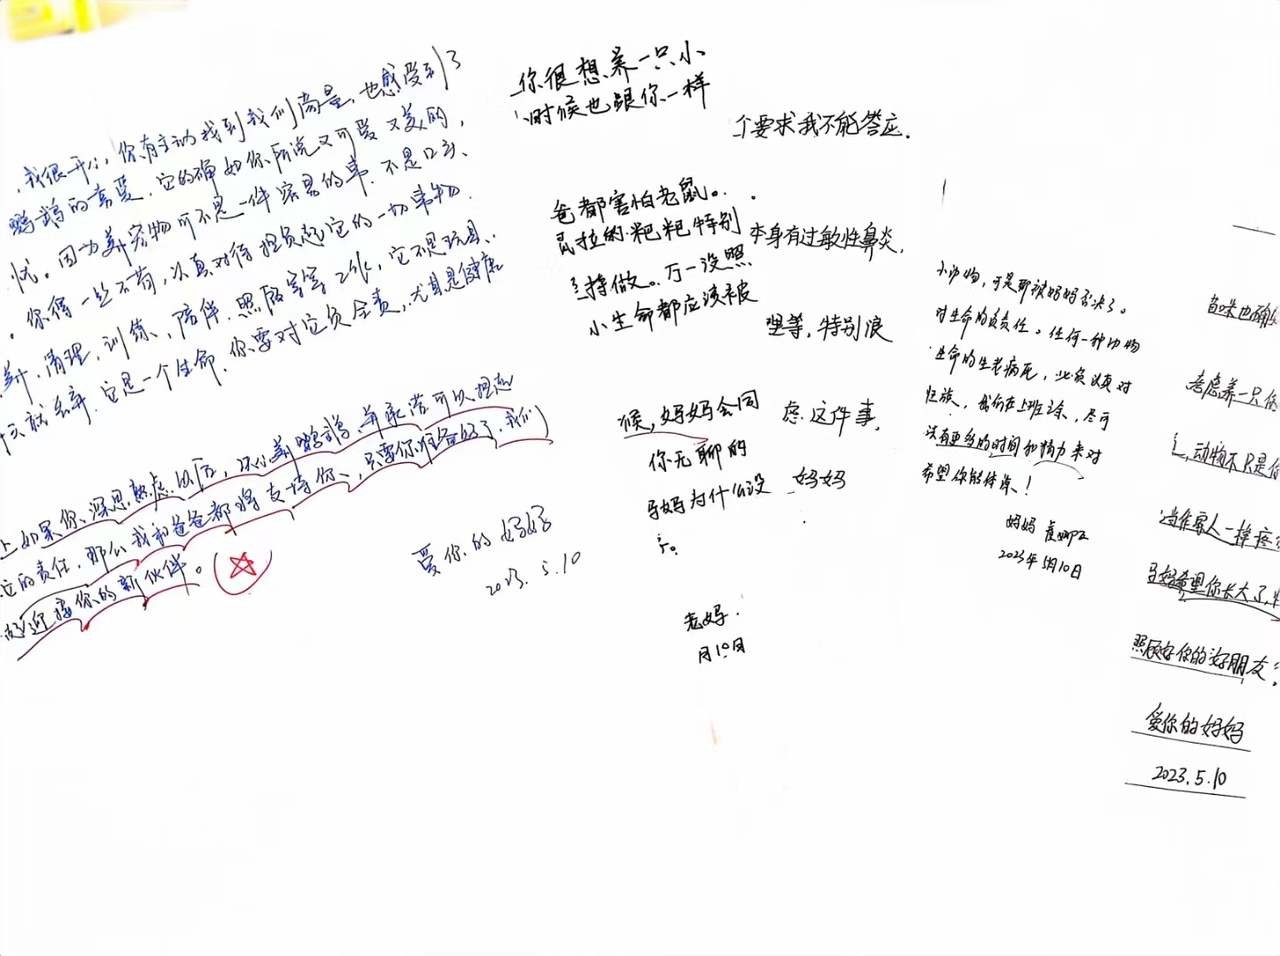 我很开心，你有主动找到我们商量，也感受到了
鹦鹉的喜爱，它的确如你所说又可爱又美的，
忧。因为养宠物可不是一件容易的事，不是口头、
你得一丝不苟，认真对待担负起它的一切事物
养，清理，训练、陪伴、照顾等等工作，它不是玩具、
就弃，它是一个生命，你要对它负全责，尤其是健康
上如果你、深思熟虑以后，决心养鹦鹉，并承诺可以担起
它的责任，那么我和爸爸都将支持你、只要你准备好了，我们
好迎接你的新伙伴。
爱你的妈妈
2023.5.10
你很想养一只小
时候也跟你一样
爸都害怕老鼠。
鼠拉的粑粑特别
持做。万一没照
小生命都应该被
候，妈妈会同
你无聊的
妈妈为什么没
老妈
月10日
个要求我不能答应.
本身有过敏性鼻炎,
里等，特别浪
虑这件事,
妈妈
小动物，可是都被妈妈否决了。
对生命的负责任。任何一种动物
生命的生老病死，必负认真对
没有更多的时间和精力来对
希望你能体谅！
妈妈
2023年5月10日
考虑养一只
动物不只是
当作家人一样
妈妈希望你长大了,
照顾好你的好朋友
爱你的妈妈
2023.5.10